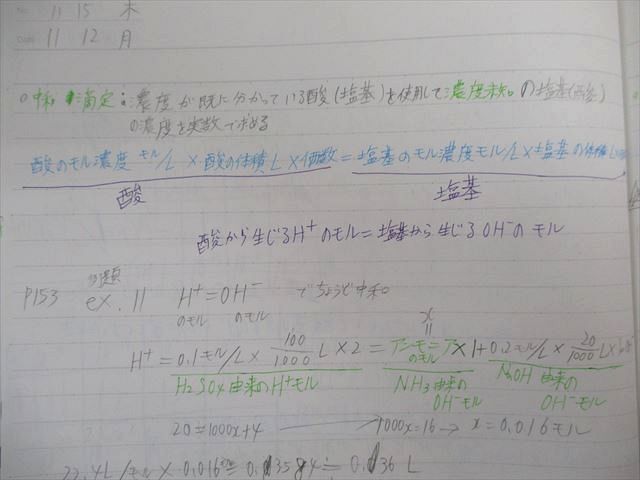 No. 11 15 木
Date 11 12 月
○中和滴定:濃度が既に分かっている酸(塩基)を使用して濃度未知の塩基(酸)
の濃度を実数で求める
酸のモル濃度 モル/L × 酸の体積 L × 価数 = 塩基のモル濃度モル/L × 塩基の体積 L
酸 塩基
酸から生じるH⁺のモル = 塩基から生じるOH⁻のモル
P153 ex. 11 H⁺ = OH⁻ でちょうど中和。
のモル のモル
x
=
H⁺ = 0.1モル/L × 100/1000 L × 2 = アンモニア のモル × 1 + 0.2モル/L × 20/1000 L ×
H₂SO₄由来のH⁺モル NH₃由来の OH⁻モル NaOH由来の OH⁻モル
20 = 1000x + 4 → 1000x = 16 → x = 0.016モル
22.4L/モル × 0.016 = 0.3584 ≒ 0.36 L